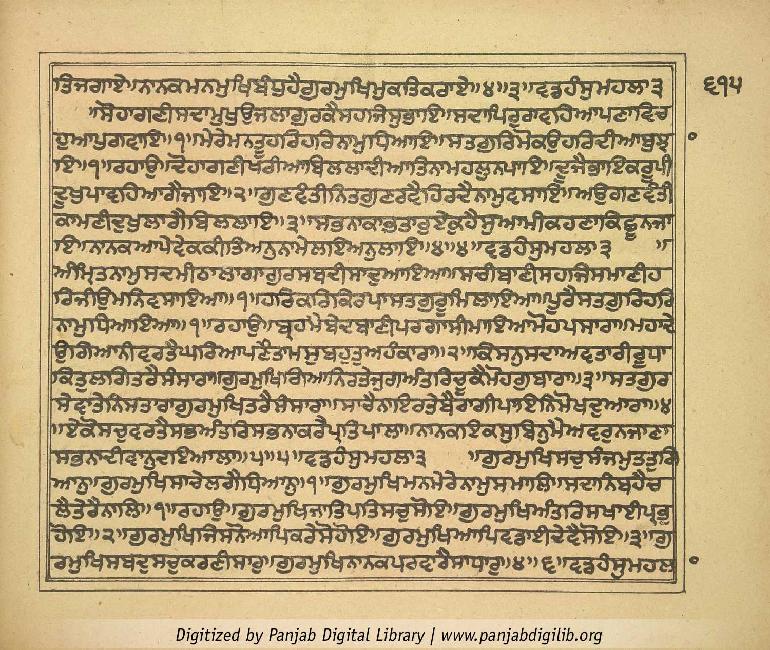 ਤਿਜਗਾਏ॥ਨਾਨਕਮਨਮੁਖਿਬੰਧੁਹੈਗੁਰਮੁਖਿਮੁਕਤਿਕਰਾਏ॥੪॥੩॥ਵਡਹੰਸੁਮਹਲਾ੩
੬੧੫
॥ਸੋਹਾਗਣੀਸਦਾਮੁਖੁਉਜਲਾਗੁਰਕੈਸਹਜਿਸੁਭਾਇ॥ਸਦਾਪਿਰੁਰਾਵਹਿਆਪਣਾਵਿਚ
ਹੁਆਪੁਗਵਾਇ॥੧॥ਮੇਰੇਮਨਤੂਹਰਿਹਰਿਨਾਮੁਧਿਆਇ॥ਸਤਗੁਰਿਮੋਕਉਹਰਿਦੀਆਬੁਝ
ਇ॥੧॥ਰਹਾਉ॥ਦੋਹਾਗਣੀਖਰੀਆਬਿਲਲਾਦੀਆਤਿਨਾਮਹਲੁਨਪਾਇ॥ਦੂਜੈਭਾਇਕਰੂਪੀ
ਦੁਖੁਪਾਵਹਿਆਗੈਜਾਇ॥੨॥ਗੁਣਵੰਤੀਨਿਤਗੁਣਰਵੈਹਿਰਦੈਨਾਮੁਵਸਾਇ॥ਅਉਗਣਵੰਤੀ
ਕਾਮਣੀਦੁਖੁਲਾਗੈਬਿਲਲਾਇ॥੩॥ਸਭਨਾਕਾਭਤਾਰੁਏਕੁਹੈਸੁਆਮੀਕਹਣਾਕਿਛੂਨਜਾ
ਇ॥ਨਾਨਕਆਪੇਵੇਕਕੀਤਿਅਨੁਨਾਮੇਲਾਇਅਨੁਲਾਇ॥੪॥੪॥ਵਡਹੰਸੁਮਹਲਾ੩ ॥
ਅੰਮ੍ਰਿਤਨਾਮੁਸਦਮੀਠਾਲਾਗਾਗੁਰਸਬਦੀਸਾਦੁਆਇਆ॥ਸਚੀਬਾਣੀਸਹਜਿਸਮਾਣੀਹ
ਰਿਜੀਉਮਨਿਵਸਾਇਆ॥੧॥ਹਰਿਕਰਿਕਿਰਪਾਸਤਗੁਰੂਮਿਲਾਇਆ॥ਪੂਰੈਸਤਗੁਰਿਹਰਿ
ਨਾਮੁਧਿਆਇਆ॥੧॥ਰਹਾਉ॥ਬ੍ਰਹਮੈਬੇਦਬਾਣੀਪਰਗਾਸੀਮਾਇਆਮੋਹਪਸਾਰਾ॥ਮਹਾਦੇ
ਉਗਿਆਨੀਵਰਤੈਘਰਿਆਪਣੈਤਾਮਸੁਬਹੁਤੁਅਹੰਕਾਰਾ॥੨॥ਕਿਸਨੁਸਦਾਅਵਤਾਰੀਰੂਧਾ
ਕਿਤੁਲਗਿਤਰੈਸੰਸਾਰਾ॥ਗੁਰਮੁਖਿਗਿਆਨਿਰਤੇਜੁਗਅੰਤਰਿਚੂਕੈਮੋਹਗੁਬਾਰਾ॥੩॥ਸਤਗੁਰ
ਸੇਵਾਤੇਨਿਸਤਾਰਾਗੁਰਮੁਖਿਤਰੈਸੰਸਾਰਾ॥ਸਾਚੈਨਾਇਰਤੇਬੈਰਾਗੀਪਾਇਨਿਮੋਖਦੁਆਰਾ॥੪
॥ਏਕੋਸਚੁਵਰਤੈਸਭਅੰਤਰਿਸਭਨਾਕਰੈਪ੍ਰਤਿਪਾਲਾ॥ਨਾਨਕਇਕਸੁਬਿਨੁਮੈਅਵਰੁਨਜਾਣਾ
ਸਭਨਾਦੀਵਾਨੁਦਇਆਲਾ॥੫॥੫॥ਵਡਹੰਸੁਮਹਲਾ੩ ॥ਗੁਰਮੁਖਿਸਚੁਸੰਜਮੁਤਤੁਗਿ
ਆਨੁ॥ਗੁਰਮੁਖਿਸਾਚੇਲਗੈਧਿਆਨੁ॥੧॥ਗੁਰਮੁਖਿਮਨਮੇਰੇਨਾਮੁਸਮਾਲਿ॥ਸਦਾਨਿਬਹੈਚ
ਲੈਤੇਰੈਨਾਲਿ॥੧॥ਰਹਾਉ॥ਗੁਰਮੁਖਿਜਾਤਿਪਤਿਸਚੁਸੋਇ॥ਗੁਰਮੁਖਿਅੰਤਰਿਸਖਾਈਪ੍ਰਭੁ
ਹੋਇ॥੨॥ਗੁਰਮੁਖਿਜਿਸਨੋਆਪਿਕਰੇਸੋਹੋਇ॥ਗੁਰਮੁਖਿਆਪਿਵਡਾਈਦੇਵੈਸੋਇ॥੩॥ਗੁ
ਰਮੁਖਿਸਬਦੁਸਚੁਕਰਣੀਸਾਰੁ॥ਗੁਰਮੁਖਿਨਾਨਕਪਰਵਾਰੈਸਾਧਾਰੁ॥੪॥੬॥ਵਡਹੰਸੁਮਹਲ
Digitized by Panjab Digital Library | www.panjabdigilib.org